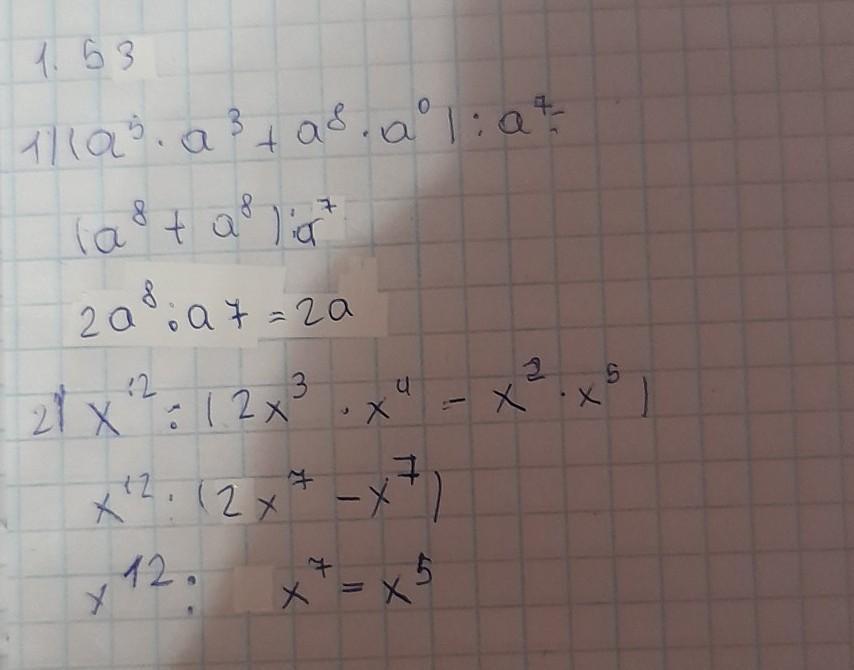 1. 53
1) (a⁵ · a³ + a⁸ · a⁰) : a⁷ =
(a⁸ + a⁸) : a⁷
2a⁸ : a7 = 2a
2) x¹² : (2x³ · x⁴ - x² · x⁵)
x¹² : (2x⁷ - x⁷)
x¹² : x⁷ = x⁵